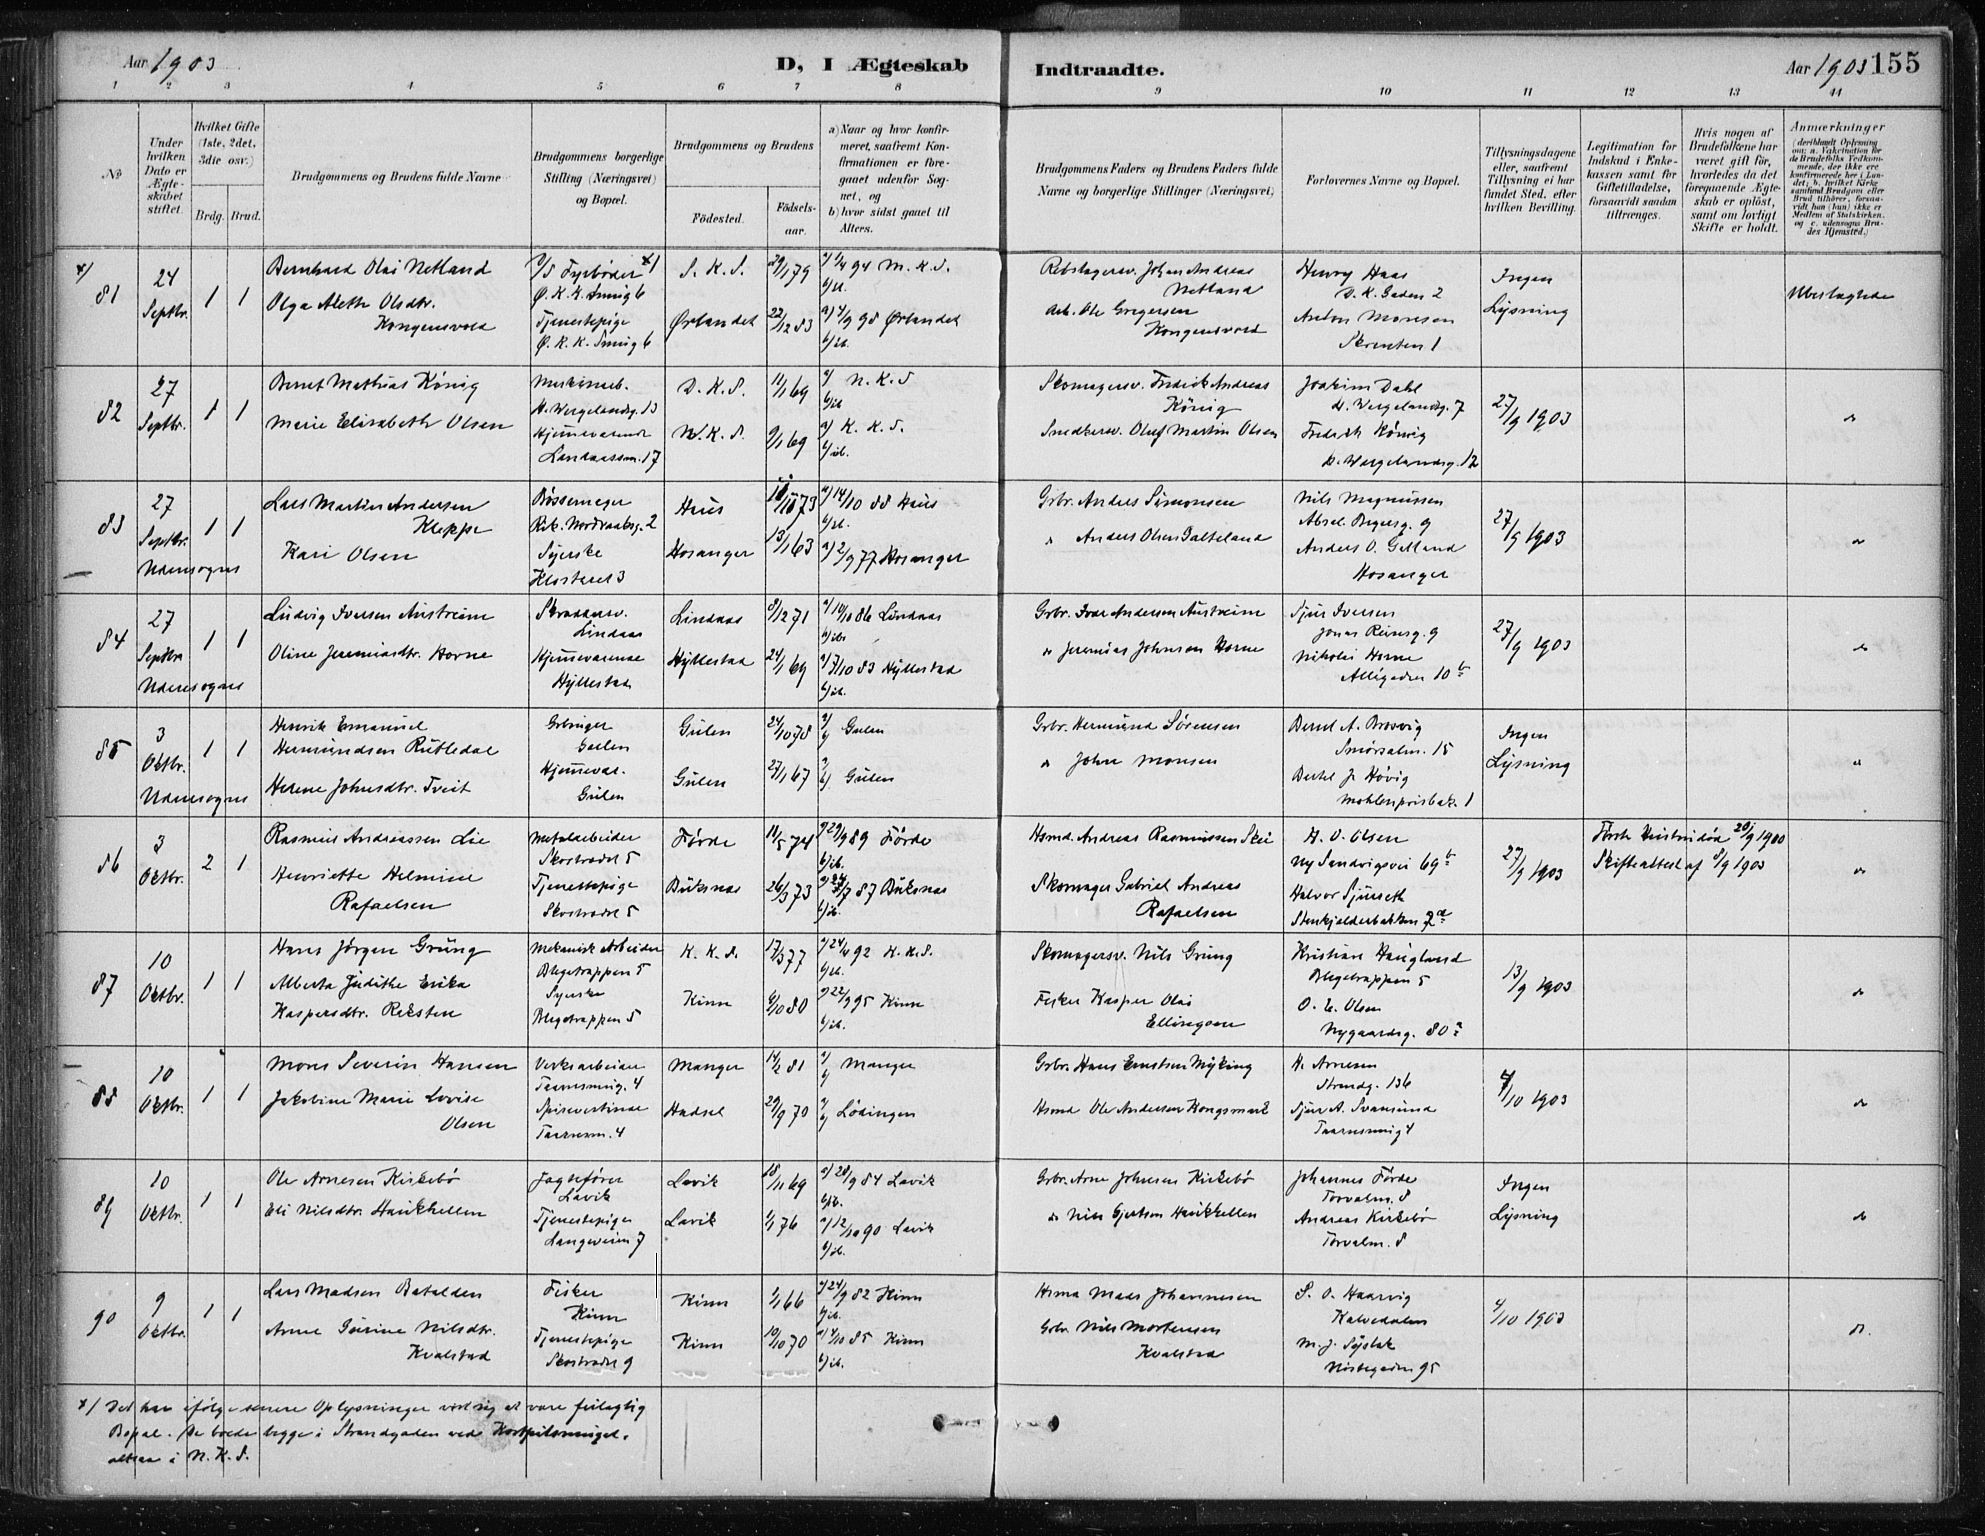 Aar 1903
D, I Ægteskab
Indtraadte.
Aar 1903 155
1 2 3 4 5 6 7 8 9 10 11 12 13 14
No
Under hvilken Dato er Ægteskabet stiftet.
Hvilket Gifte (1ste, 2det, 3die osv.)
Brdg. Brud.
Brudgommens og Brudens fulde Navne
Brudgommens borgerlige Stilling (Næringsvei) og Bopæl.
Brudgommens og Brudens
Fødested.
Fødselsaar.
a) Naar og hvor konfirmeret, saafremt Konfirmationen er foregaaet udenfor Sognet, og
b) hvor sidst gaaet til Alters.
Brudgommens Faders og Brudens Faders fulde Navne og borgerlige Stillinger (Næringsvei)
Forlovernes Navne og Bopæl.
Tillysningsdagene eller, saafremt Tillysning ei har fundet Sted, efter hvilken Bevilling.
Legitimation for Indskud i Enkekassen samt for Giftetilladelse, forsaavidt saadan tiltrænges.
Hvis nogen af Brudefolkene har været gift før, hvorledes da det foregaaende Ægteskab er opløst, samt om lovligt Skifte er holdt.
Anmærkninger
x) 81
24 Septbr.
1 1
Bernhard Olai Netland
Olga Alethe Olsdtr. Kongensvold
Fyrbøder x)
Ø. K. K. Smug 6
Tjenestepige
Ø. K. K. Smug 6
S. K. S.
Ørlandet
29/1 79
22/12 83
a) 1/4 94 M. K. S.
b) ib.
a) 4/9 98 Ørlandet
b) ib.
Rebslagersv. Johan Andreas Netland
Arb. Ole Gregersen Kongensvold
Henry Haas
D. K. Gaden 2
Anton Monsen
Skrenten 1
Ingen Lysning
Ubeslægtede
82
27 Septbr.
1 1
Bernt Mathias König
Marie Elisabeth Olsen
Maskinarb.
H. Wergelandsg. 13
Hjemmeværende
Landaassm. 17
D. K. S.
N. K. S.
11/1 69
9/1 69
a) N. K. S
b) ib
a) K. K. S.
b) ib.
Skomagersv. Fredrik Andreas König
Snedkersv. Oluf Martin Olsen
Joakim Dahl
H. Wergelandsg. 7
Fredrik König
H. Wergelandsg. 12
27/9 1903
do
83
27 Septbr.
Udensogns
1 1
Lars Martin Andersen Kleppe
Kari Olsen
Bøssemager
Rik. Nordraaksg. 2
Syerske
Klosteret 3
Haus
Hosanger
13/1 63
a) 14/10 88 Haus
b) ib.
a) 2/9 77 Hosanger
Grbr. Anders Simonsen
" Anders Olsen
Nils Magnussen
Absal. Beyersg. 9
Anders O.
Hosanger
27/9 1903
do
84
27 Septbr
Udensogns
1 1
Ludvig Iversen Austreim
Oline Jeremiasdtr. Horne
Skræddersv.
Lindaas
Hjemmeværende
Hyllestad
Lindaas
Hyllestad
8/12 71
24/1 69
a) 10/10 86 Lindaas
b) ib.
a) 7/10 83 Hyllestad
b) ib.
Grbr. Ivar Andersen Austreim
" Jeremias Johnsen Horne
Sjur Iversen
Jonas Reinsg. 9
Nikolai Horne
Allégaden 10 b
27/9 1903
do
85
3 Oktbr.
Udensogns
1 1
Henrik Emanuel
Hermundsen Rutledal
Helene Johnsdtr. Tveit
Grbruger
Gulen
Hjemmevær.
Gulen
Gulen
Gulen
24/10 78
27/1 67
a) b) Gulen
a) b) Gulen
Grbr. Hermund Sørensen
" John Monsen
Bernt A. Brosvig
Smørsalm. 15
Bertel J. Høvig
Møhlenprisbak. 1
Ingen Lysning
"
86
3 Oktbr.
2 1
Rasmus Andreassen Lie
Henriette Helmine Rafaelsen
Metalarbeider
Skostrædet 5
Tjenestepige
Skostrædet 5
Førde
Buksnæs
11/5 74
26/3 73
a) 29/9 89 Førde
b) ib.
87 Buksnæs
b) ib.
Hsmd. Andreas Rasmussen Skei
Skomager Gabriel Andreas Rafaelsen
H. O. Olsen
Ny Sandvigsvei 69 b
Halvor Sjurseth
Stenkjelderbakken 7 a
27/9 1903
Første Hustru død 20/9 1900
Skifteattest af 8/9 1903
do
87
10 Oktbr.
1 1
Hans Jørgen Grung
Alberta Judithe Erika
Kaspersdtr. Reksten
Mekanisk Arbeider
Blegetrappen 5
Syerske
Blegetrappen 5
K. K. S.
Kinn
17/3 77
6/10 80
a) 24/4 92 K. K. S.
b) ib.
a) 22/9 95 Kinn
b) ib.
Skomagersv. Nils Grung
Fisker Kasper Olai Ellingsen
Kristian Haugland
Blegetrappen 5
O. E. Olsen
Nygaardsg. 80 a
13/9 1903
do
88
10 Oktbr.
1 1
Mons Severin Hansen
Jakobine Marie Lovise Olsen
Verksarbeider
Taarnsmug. 4
Spisevertinde
Taarnsm. 4
Manger
Hadsel
14/2 81
29/9 70
a) b) Manger
a) b) Lødingen
Grbr. Hans Erntsen Myking
Hsmd Ole Andersen Kongsmark
H. Arnesen
Strandg. 136
Sjur A. Svansund
Taarnsmug 4
4/10 1903
do
89
10 Oktbr.
1 1
Ole Arnesen Kirkebø
Eli Nilsdtr. Haukhellen
Jagtefører
Lavik
Tjenestepige
Langeveien 7
Lavik
Lavik
18/11 69
1/1 76
a) 28/9 84 Lavik
b) ib.
a) 12/10 90 Lavik
b) ib.
Grbr. Arne Johnsen Kirkebø
do Nils Gjertsen Haukhellen
Johannes Førde
Torvalm. 8
Andreas Kirkebø
Torvalm. 8
Ingen Lysning
do
90
9 Oktbr.
1 1
Lars Madsen Batalden
Anne Gurine Nilsdtr. Kvalstad
Fisker
Kinn
Tjenestepige
Skostrædet 9
Kinn
Kinn
1/1 66
10/10 70
a) 24/9 82 Kinn
b) ib.
a) 4/10 85 Kinn
b) ib.
Hsmd Mads Johannesen
Grbr. Nils Mortensen Kvalstad
S. O. Haarvig
Kalvedalen
M. J.
Nøstegaden 95
4/10 1903
do.
x) Det har ifølge senere Oplysninger vist sig at være feilagtig
Bopæl. De boede begge i Strandgaden ved
altsaa i N. K. S.